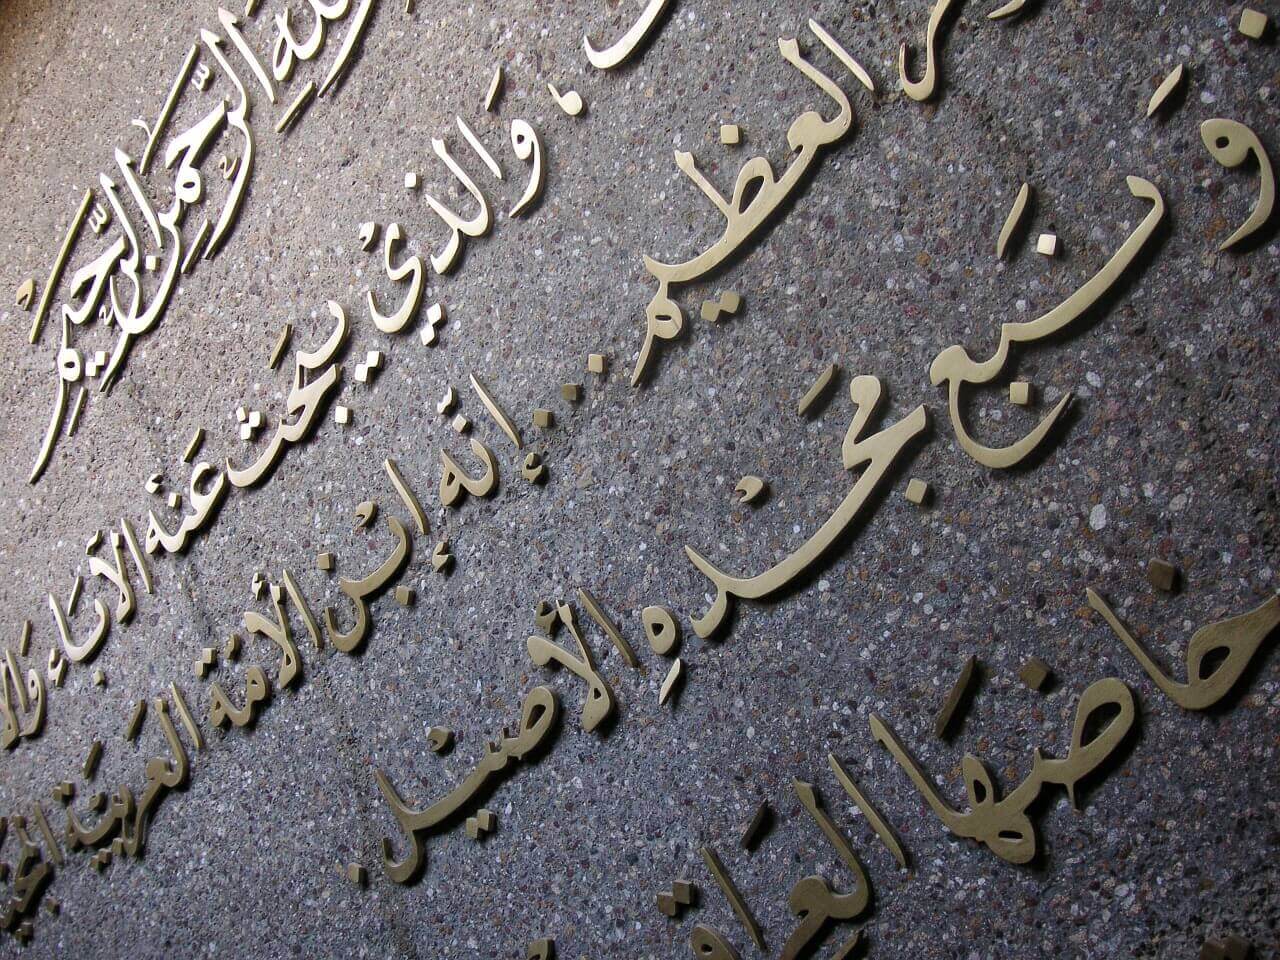 الله الرَّحمنِ الرَّحيمِ
، وَالذيْ يبحَث عَنه الآبَاءُ
العظيم ... إنه ابْن الأمَة العَربيَّة
وَنَبع مَجْدهِ الأصيْل.
خاضَها